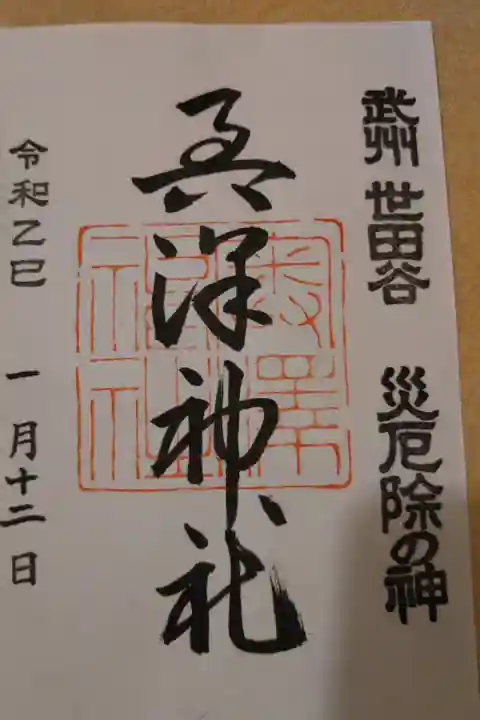 武州 世田谷 災厄除の神
奥澤神社
奥澤神社
令和乙巳 一月十二日